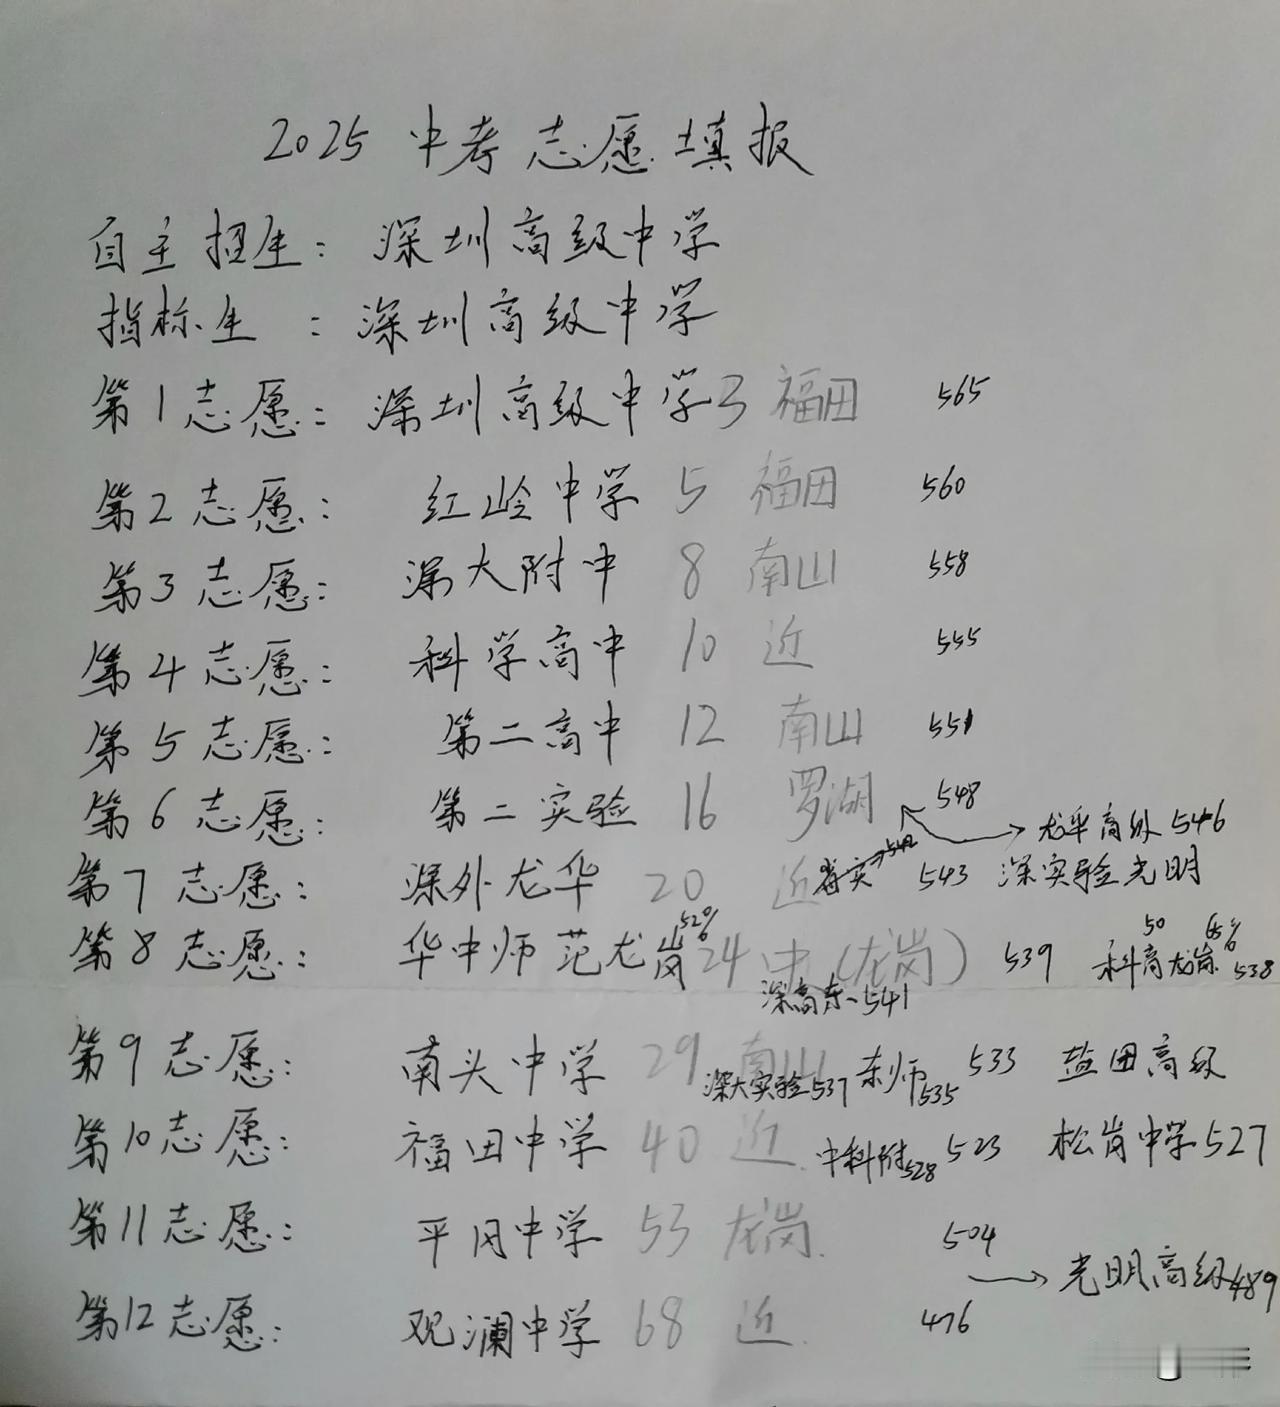 2025 中考志愿填报
自主招生：深圳高级中学
指标生：深圳高级中学
第1志愿：深圳高级中学 3 福田 565
第2志愿：红岭中学 5 福田 560
第3志愿：深大附中 8 南山 558
第4志愿：科学高中 10 近 555
第5志愿：第二高中 12 南山 551
第6志愿：第二实验 16 罗湖 548
→龙华高级 546
第7志愿：深外龙华 20 近 543 深实验光明
第8志愿：华中师范龙岗 24 中（龙岗） 539 科高龙岗 538
深高东-541
第9志愿：南头中学 29 南山 533 盐田高级
深大实验537 东师535
第10志愿：福田中学 40 近 中科附528 523 松岗中学527
第11志愿：平冈中学 53 龙岗 504
→光明高级489
第12志愿：观澜中学 68 近 476